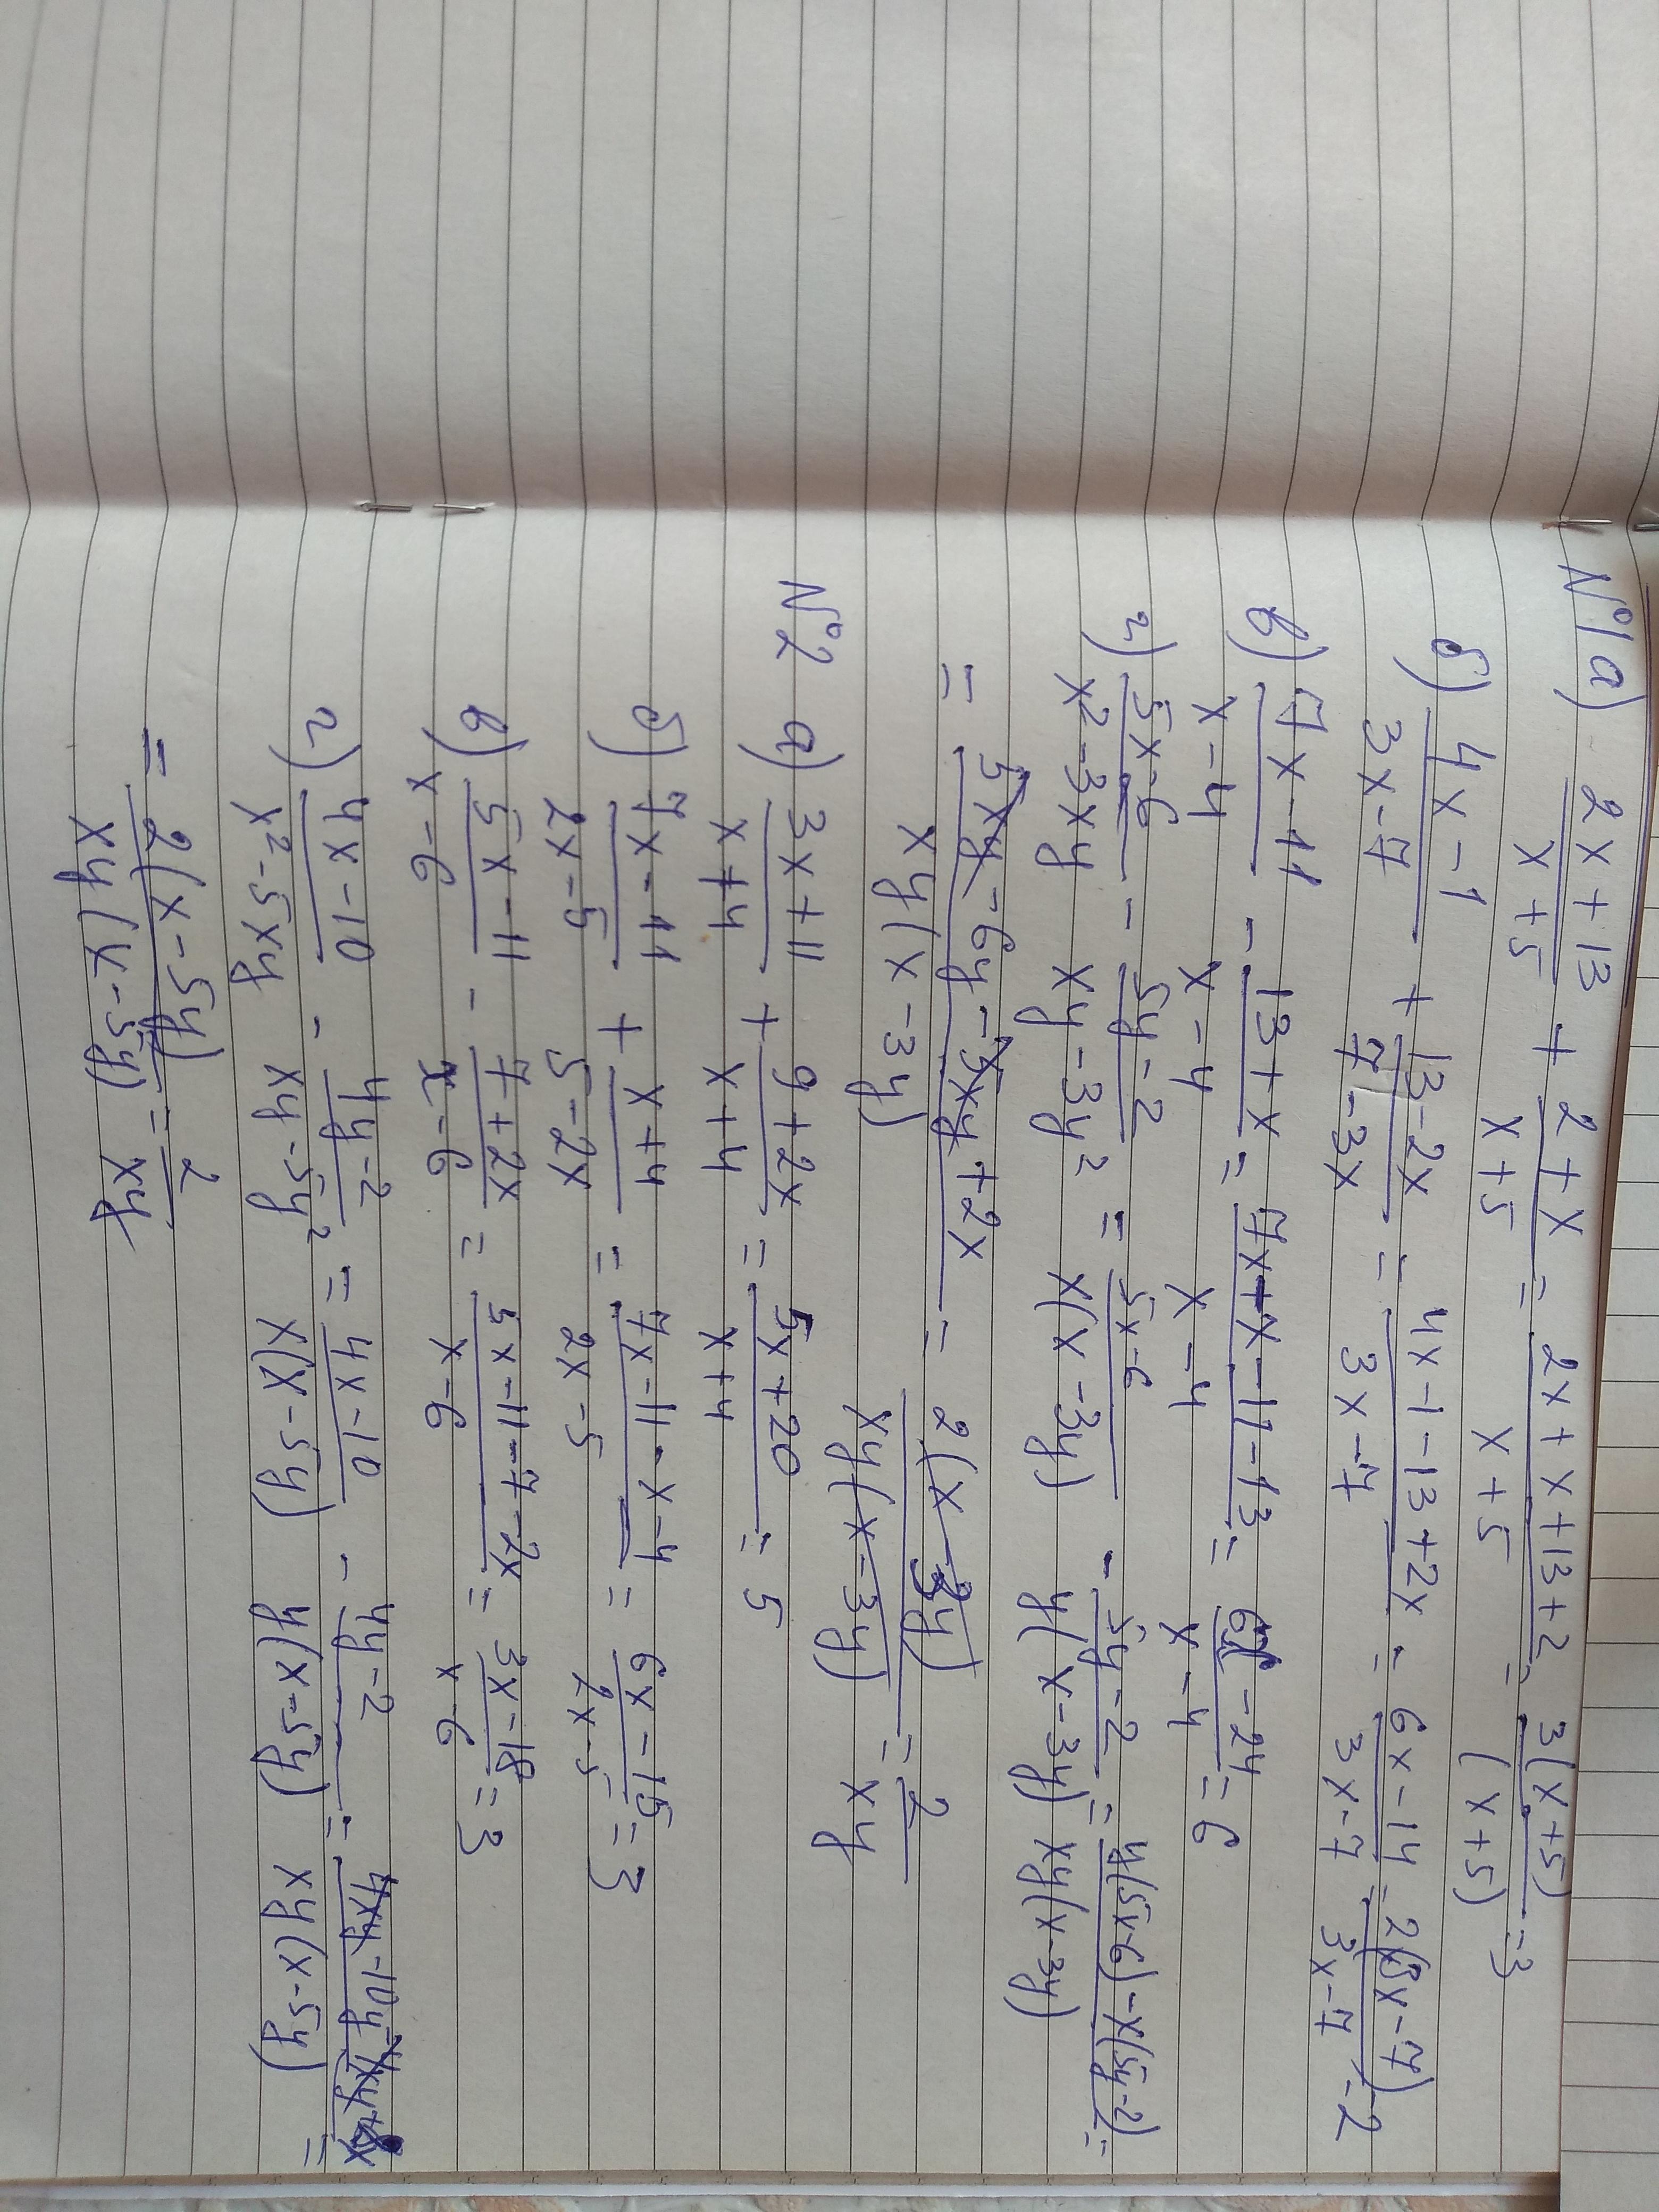 N°1 а) (2x+13)/(x+5) + (2+x)/(x+5) = (2x+x+13+2)/(x+5) = 3(x+5)/(x+5) = 3
б) (4x-1)/(3x-7) + (13-2x)/(7-3x) = (4x-1-13+2x)/(3x-7) = (6x-14)/(3x-7) = 2(3x-7)/(3x-7) = 2
в) (7x-11)/(x-4) - (13+x)/(x-4) = (7x+x-11-13)/(x-4) = (6x-24)/(x-4) = 6
г) (5x-6)/(x²-3xy) - (5y-2)/(xy-3y²) = (5x-6)/(x(x-3y)) - (5y-2)/(y(x-3y)) = (y(5x-6)-x(5y-2))/(xy(x-3y)) =
= (5xy-6y-5xy+2x)/(xy(x-3y)) = 2(x-3y)/(xy(x-3y)) = 2/(xy)
N°2 а) (3x+11)/(x+4) + (9+2x)/(x+4) = (5x+20)/(x+4) = 5
б) (7x-11)/(2x-5) + (x+4)/(5-2x) = (7x-11-x-4)/(2x-5) = (6x-15)/(2x-5) = 3
в) (5x-11)/(x-6) - (7+2x)/(x-6) = (5x-11-7-2x)/(x-6) = (3x-18)/(x-6) = 3
г) (4x-10)/(x²-5xy) - (4y-2)/(xy-5y²) = (4x-10)/(x(x-5y)) - (4y-2)/(y(x-5y)) = (4xy-10y-4xy+2x)/(xy(x-5y)) =
= 2(x-5y)/(xy(x-5y)) = 2/(xy)